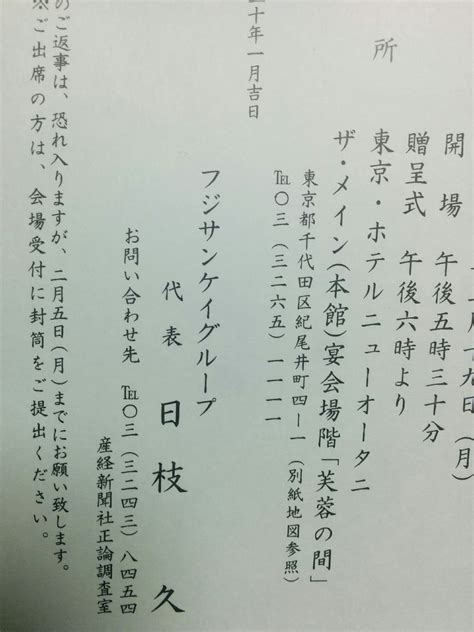 月十九日(月)
開場　午後五時三十分
贈呈式　午後六時より
所
東京・ホテルニューオータニ
ザ・メイン(本館)宴会場階「芙蓉の間」
東京都千代田区紀尾井町四ー一(別紙地図参照)
℡〇三(三二六五)一一一一
十年一月吉日
フジサンケイグループ
代表　日枝　久
お問い合わせ先　℡〇三(三二四三)八四五四
産経新聞社正論調査室
のご返事は、恐れ入りますが、二月五日(月)までにお願い致します。
※ご出席の方は、会場受付に封筒をご提出ください。